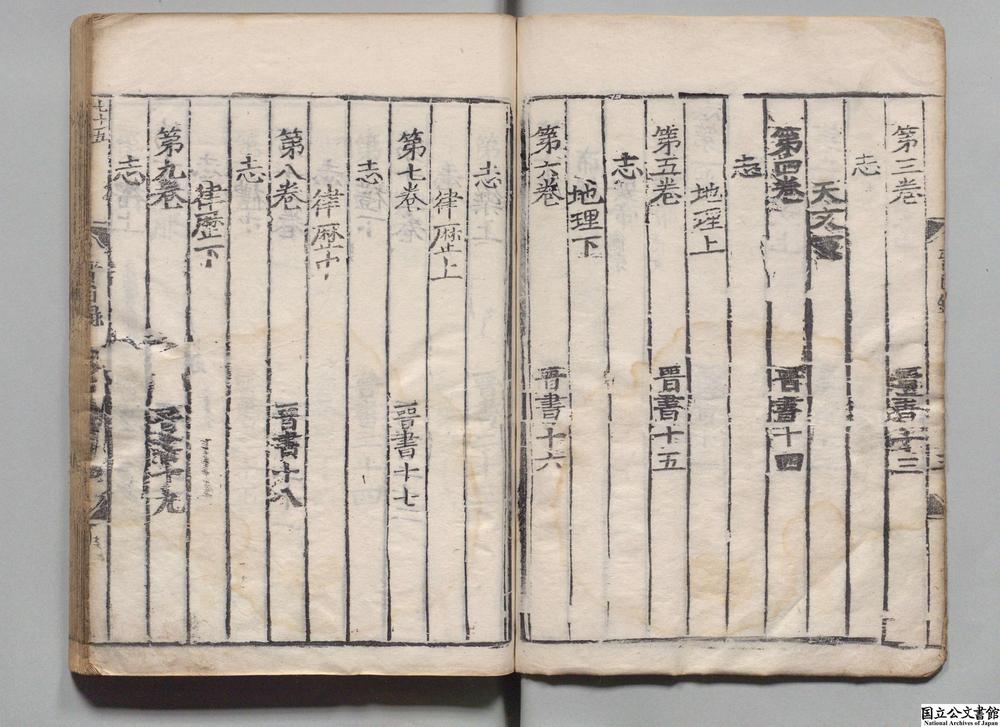 第三卷 晉書十三
志
天文下
第四卷 晉書十四
志
地理上
第五卷 晉書十五
志
地理下
第六卷 晉書十六
志
律曆上
第七卷 晉書十七
志
律曆中
第八卷 晉書十八
志
律曆下
第九卷 晉書十九
志
七十五
国立公文書館
National Archives of Japan